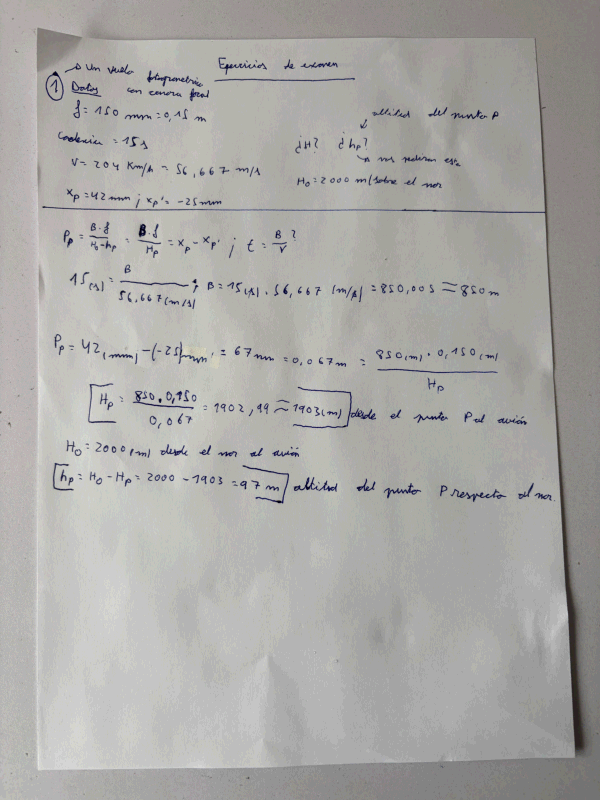 Ejercicios de examen
→ Un vuelo fotogrametrico
① Datos con camara focal
f = 150 mm = 0,15 m
altitud del punto P
Cadencia = 15 s
¿H? ¿hp?
V = 204 Km/h = 56,667 m/s
→ nos pediran esta
H₀ = 2000 m sobre el mar
xp = 42 mm ; xp' = -25 mm
Pp = B·f / H₀-hp = B·f / Hp = xp - xp' ; t = B / V ?
15(s) = B / 56,667 (m/s) ; B = 15(s) · 56,667 (m/s) = 850,005 ≈ 850 m
Pp = 42(mm) - (-25)mm = 67 mm = 0,067 m = 850(m) · 0,150(m) / Hp
[Hp = 850 · 0,150 / 0,067 = 1902,99 ≈ 1903(m)] desde el punto P al avión
H₀ = 2000(m) desde el mar al avión
[hp = H₀ - Hp = 2000 - 1903 = 97 m] altitud del punto P respecto al mar.